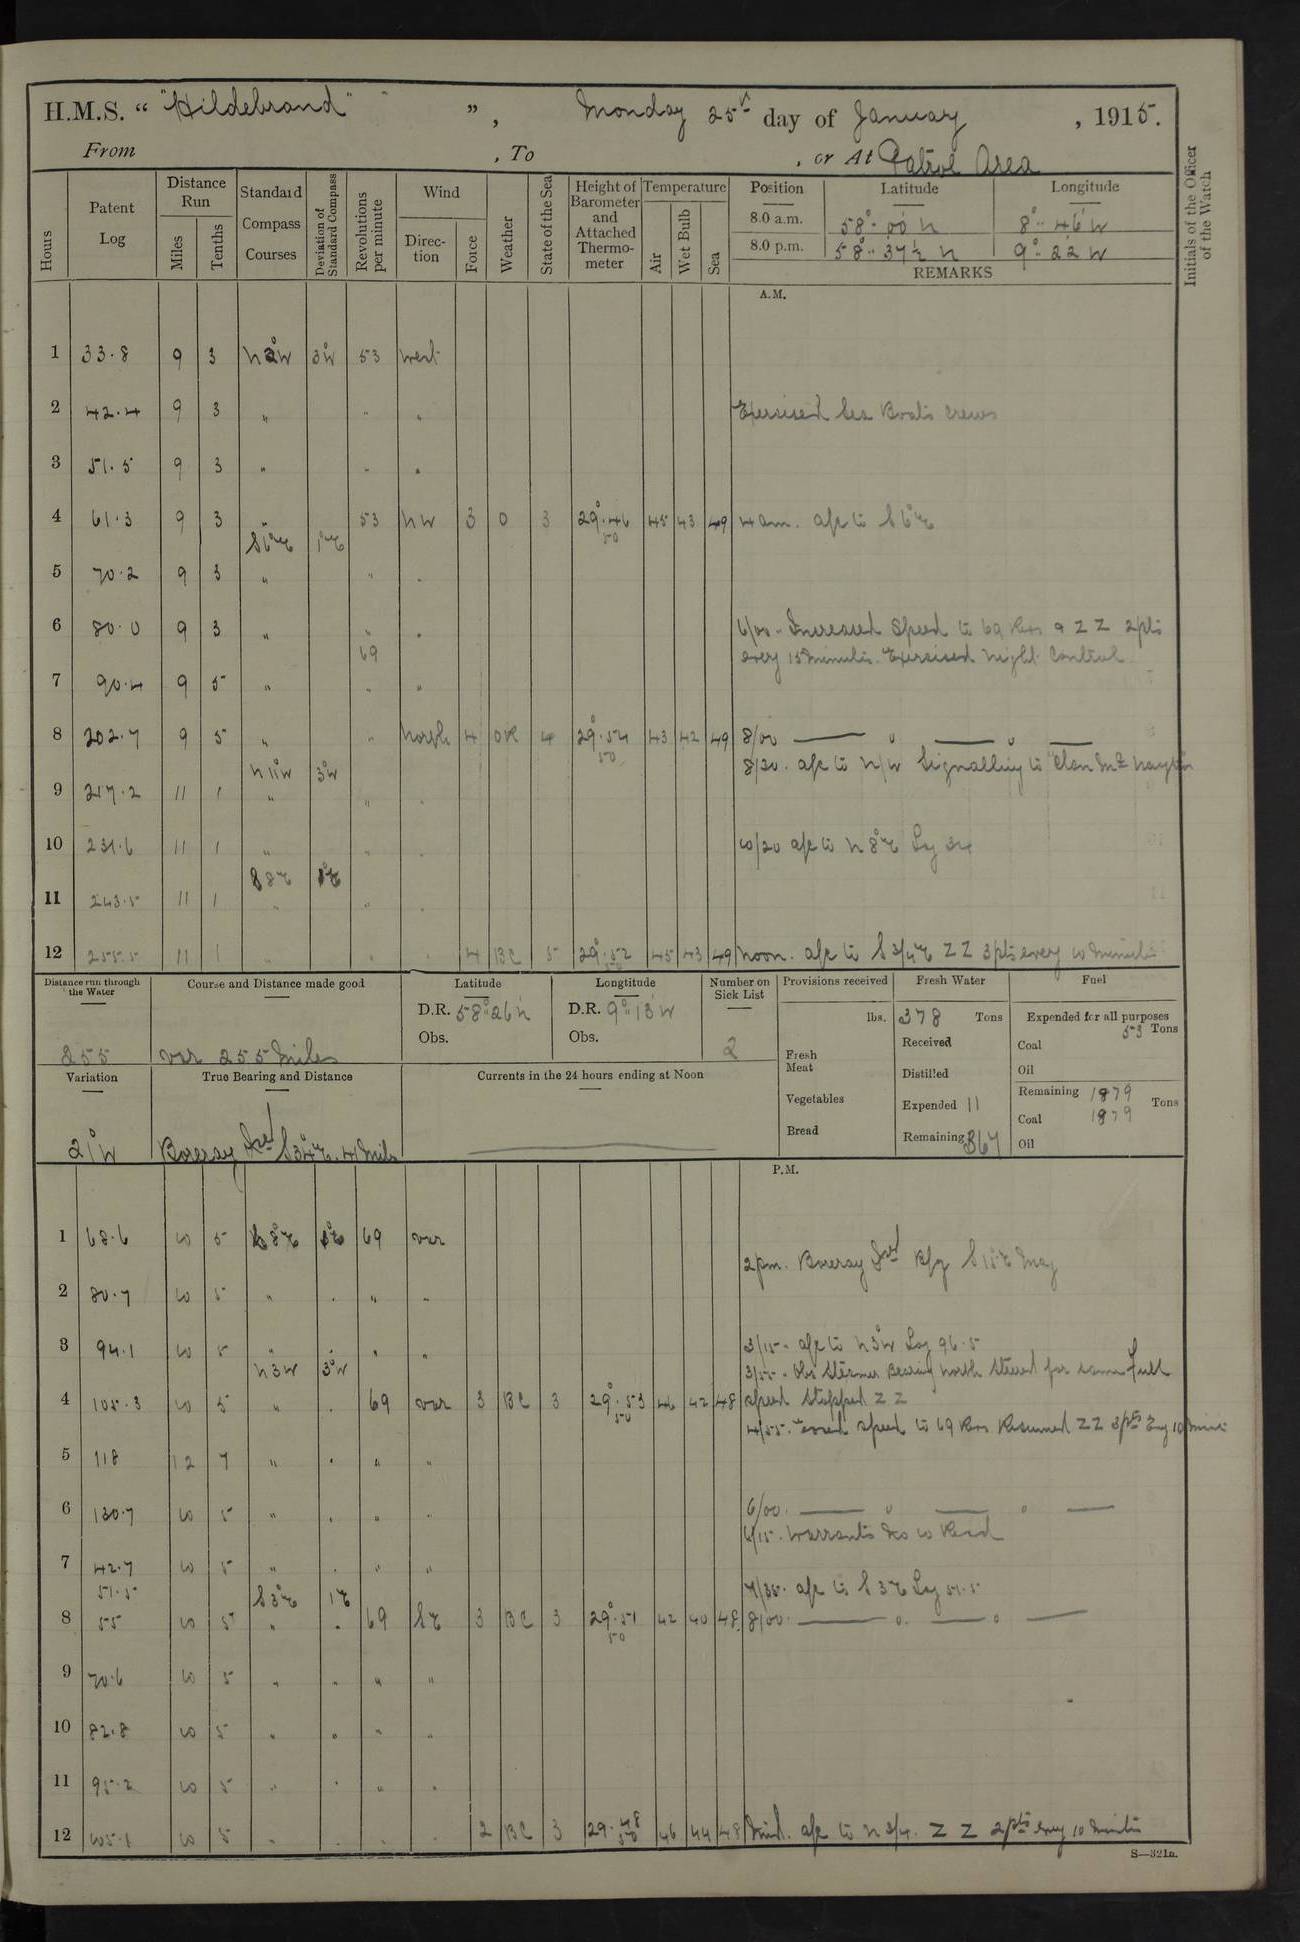 H.M.S. " "Hildebrand" ", Monday 25th day of January, 1915.
From , To , or At Patrol Area
Hours
Patent Log
Distance Run
Miles
Tenths
Standard Compass Courses
Deviation of Standard Compass
Revolutions per minute
Wind
Direction
Force
Weather
State of the Sea
Height of Barometer and Attached Thermometer
Temperature
Air
Wet Bulb
Sea
Position Latitude Longitude
8.0 a.m. 58°.. 00' N 8°.. 46' W
8.0 p.m. 58°.. 37½ N 9°.. 22 W
REMARKS
Initials of the Officer of the Watch
A.M.
1 33.8 9 3 N2°W 3°W 53 West
2 42.4 9 3 " " " Exercised Sea Boats crews
3 51.5 9 3 " " "
4 61.3 9 3 " 53 NW 3 O 3 29°.46 45 43 49 4 am. a/c to S6°E
50
S6°E 1°E
5 70.2 9 3 " " "
6 80.0 9 3 " " " 6/00 - Increased Speed to 69 Revs & ZZ 2pts
69 every 15 Minutes. Exercised Night Control
7 90.4 9 5 " " "
8 202.7 9 5 " " North 4 OR 4 29°.54 43 42 49 8/00 —— " —— " ——
50
N11°W 3°W 8/20. a/c to N/W Signalling to "Clan McNaughton
9 217.2 11 1 " " "
10 231.6 11 1 " " " 10/20 a/c to N 8°E Log
8°E 1°E
11 243.5 11 1 " " "
12 255.5 11 1 " " " 4 BC 5 29°.52 45 43 49 Noon. a/c to S 3/4E ZZ 3pts every 10 Minutes
50
Distance run through the Water
255
Course and Distance made good
var 255 Miles
Latitude
D.R. 58°..26'N
Obs.
Longtitude
D.R. 9°..13'W
Obs.
Number on Sick List
2
Provisions received
lbs.
Fresh Meat
Vegetables
Bread
Fresh Water
378 Tons
Received
Distilled
Expended 11
Remaining 367
Fuel
Expended for all purposes
53 Tons
Coal
Oil
Remaining 1879 Tons
Coal 1879
Oil
Variation
21°W
True Bearing and Distance
Boreray Isd S34°E. 41 Miles
Currents in the 24 hours ending at Noon
P.M.
1 68.6 10 5 8°E 1°E 69 var
2pm. Boreray Isd Brg S15°E Mag
2 80.7 10 5 " . " "
3 94.1 10 5 " . " " 3/15 - a/c to N3°W Log 96.5
N3W 3°W 3/55 - Obs Steamer Bearing North Steered for same Full
4 105.3 10 5 " . 69 var 3 BC 3 29°.53 46 42 48 speed Stopped ZZ
50
4/55. Eased Speed to 69 Revs Resumed ZZ 3pts Evy 10 Mins
5 118 12 7 " . " "
6 130.7 10 5 " . " " 6/00. —— " —— " ——
6/15. Warrants No 10 Read
7 42.7 10 5 " . " "
51.5 S3°E 1°E 7/35. a/c to S 3°E Log 51.5
8 55 10 5 " . 69 SE 3 BC 3 29°.51 42 40 48 8/00. —— " —— " ——
50
9 70.6 10 5 " " " "
10 82.8 10 5 " " " "
11 95.2 10 5 " " " "
12 105.1 10 5 " . . . 2 BC 3 29.48 46 44 48 Mid. a/c to N 3/4. ZZ 2pts every 10 Minutes
50
S—321a.